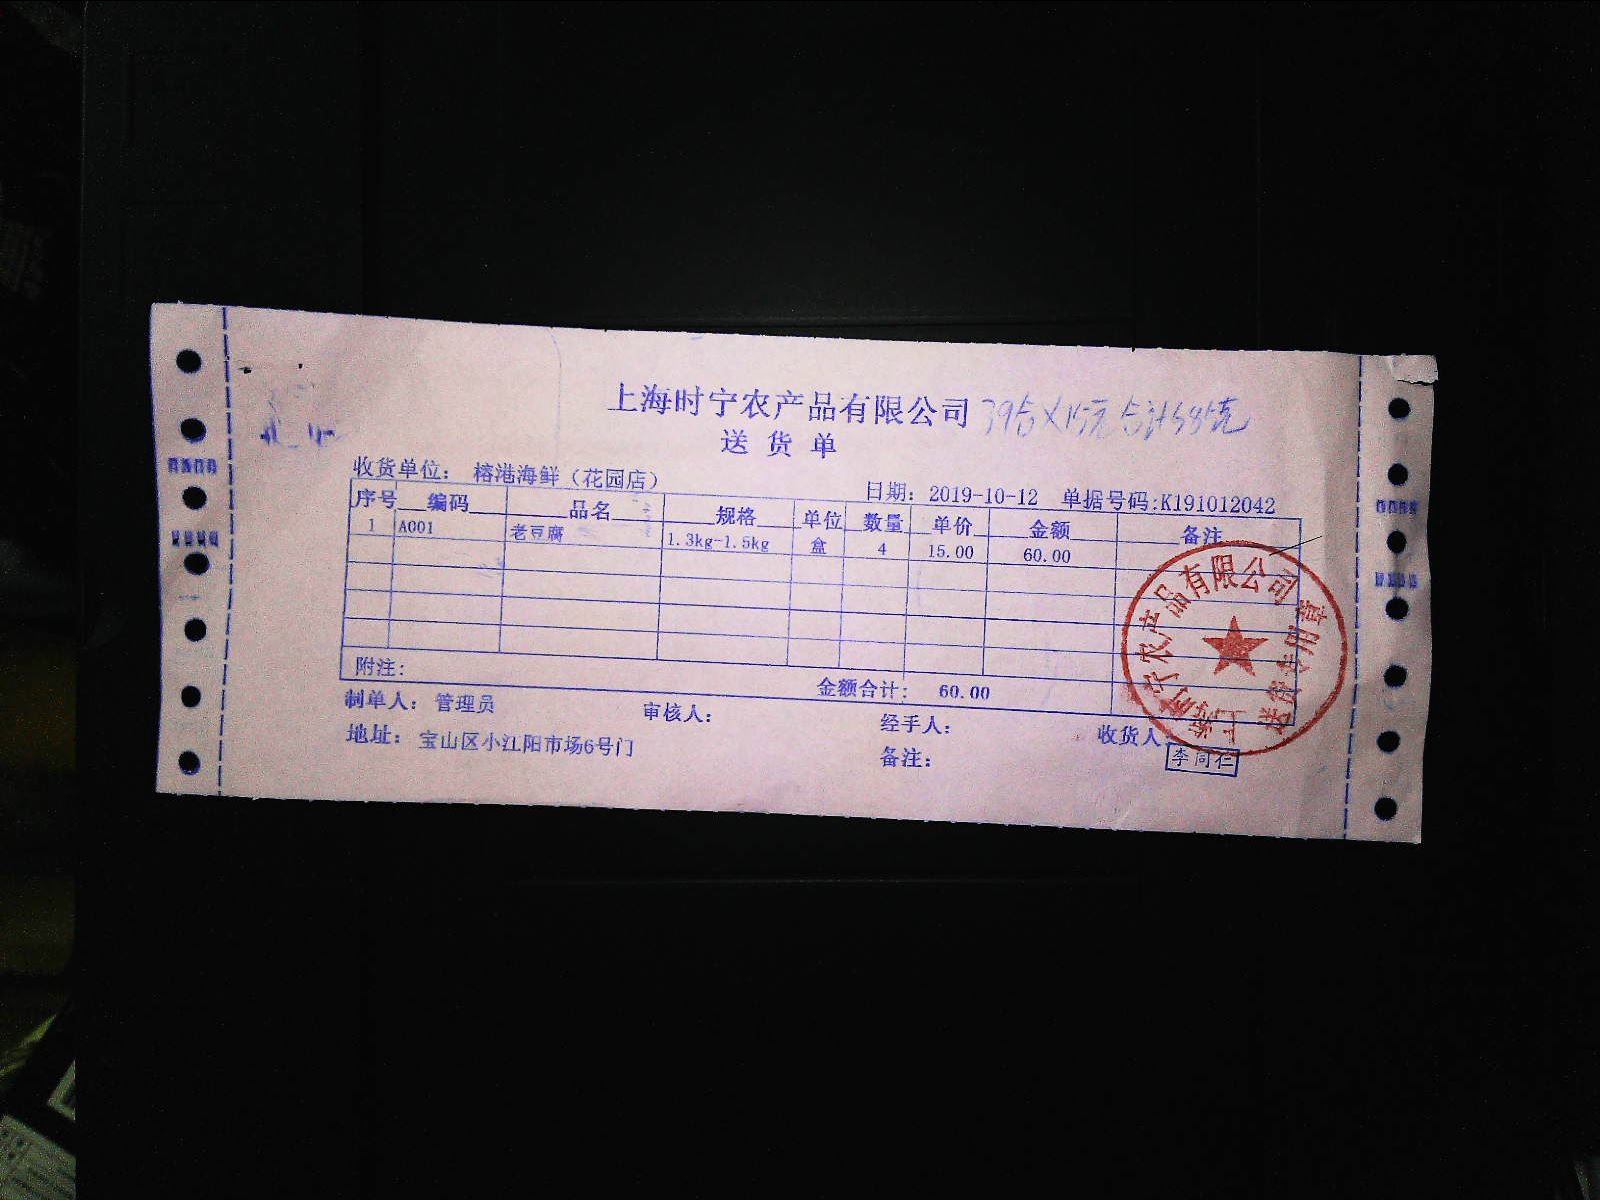 上海时宁农产品有限公司 39盒×15元 合计585元
送货单
收货单位: 榕港海鲜（花园店） 日期: 2019-10-12 单据号码:K191012042
序号 编码 品名 规格 单位 数量 单价 金额 备注
1 A001 老豆腐 1.3kg-1.5kg 盒 4 15.00 60.00
附注: 金额合计: 60.00
制单人: 管理员 审核人: 经手人: 收货人
地址: 宝山区小江阳市场6号门 备注: 李同仁
上海时宁农产品有限公司
送货专用章